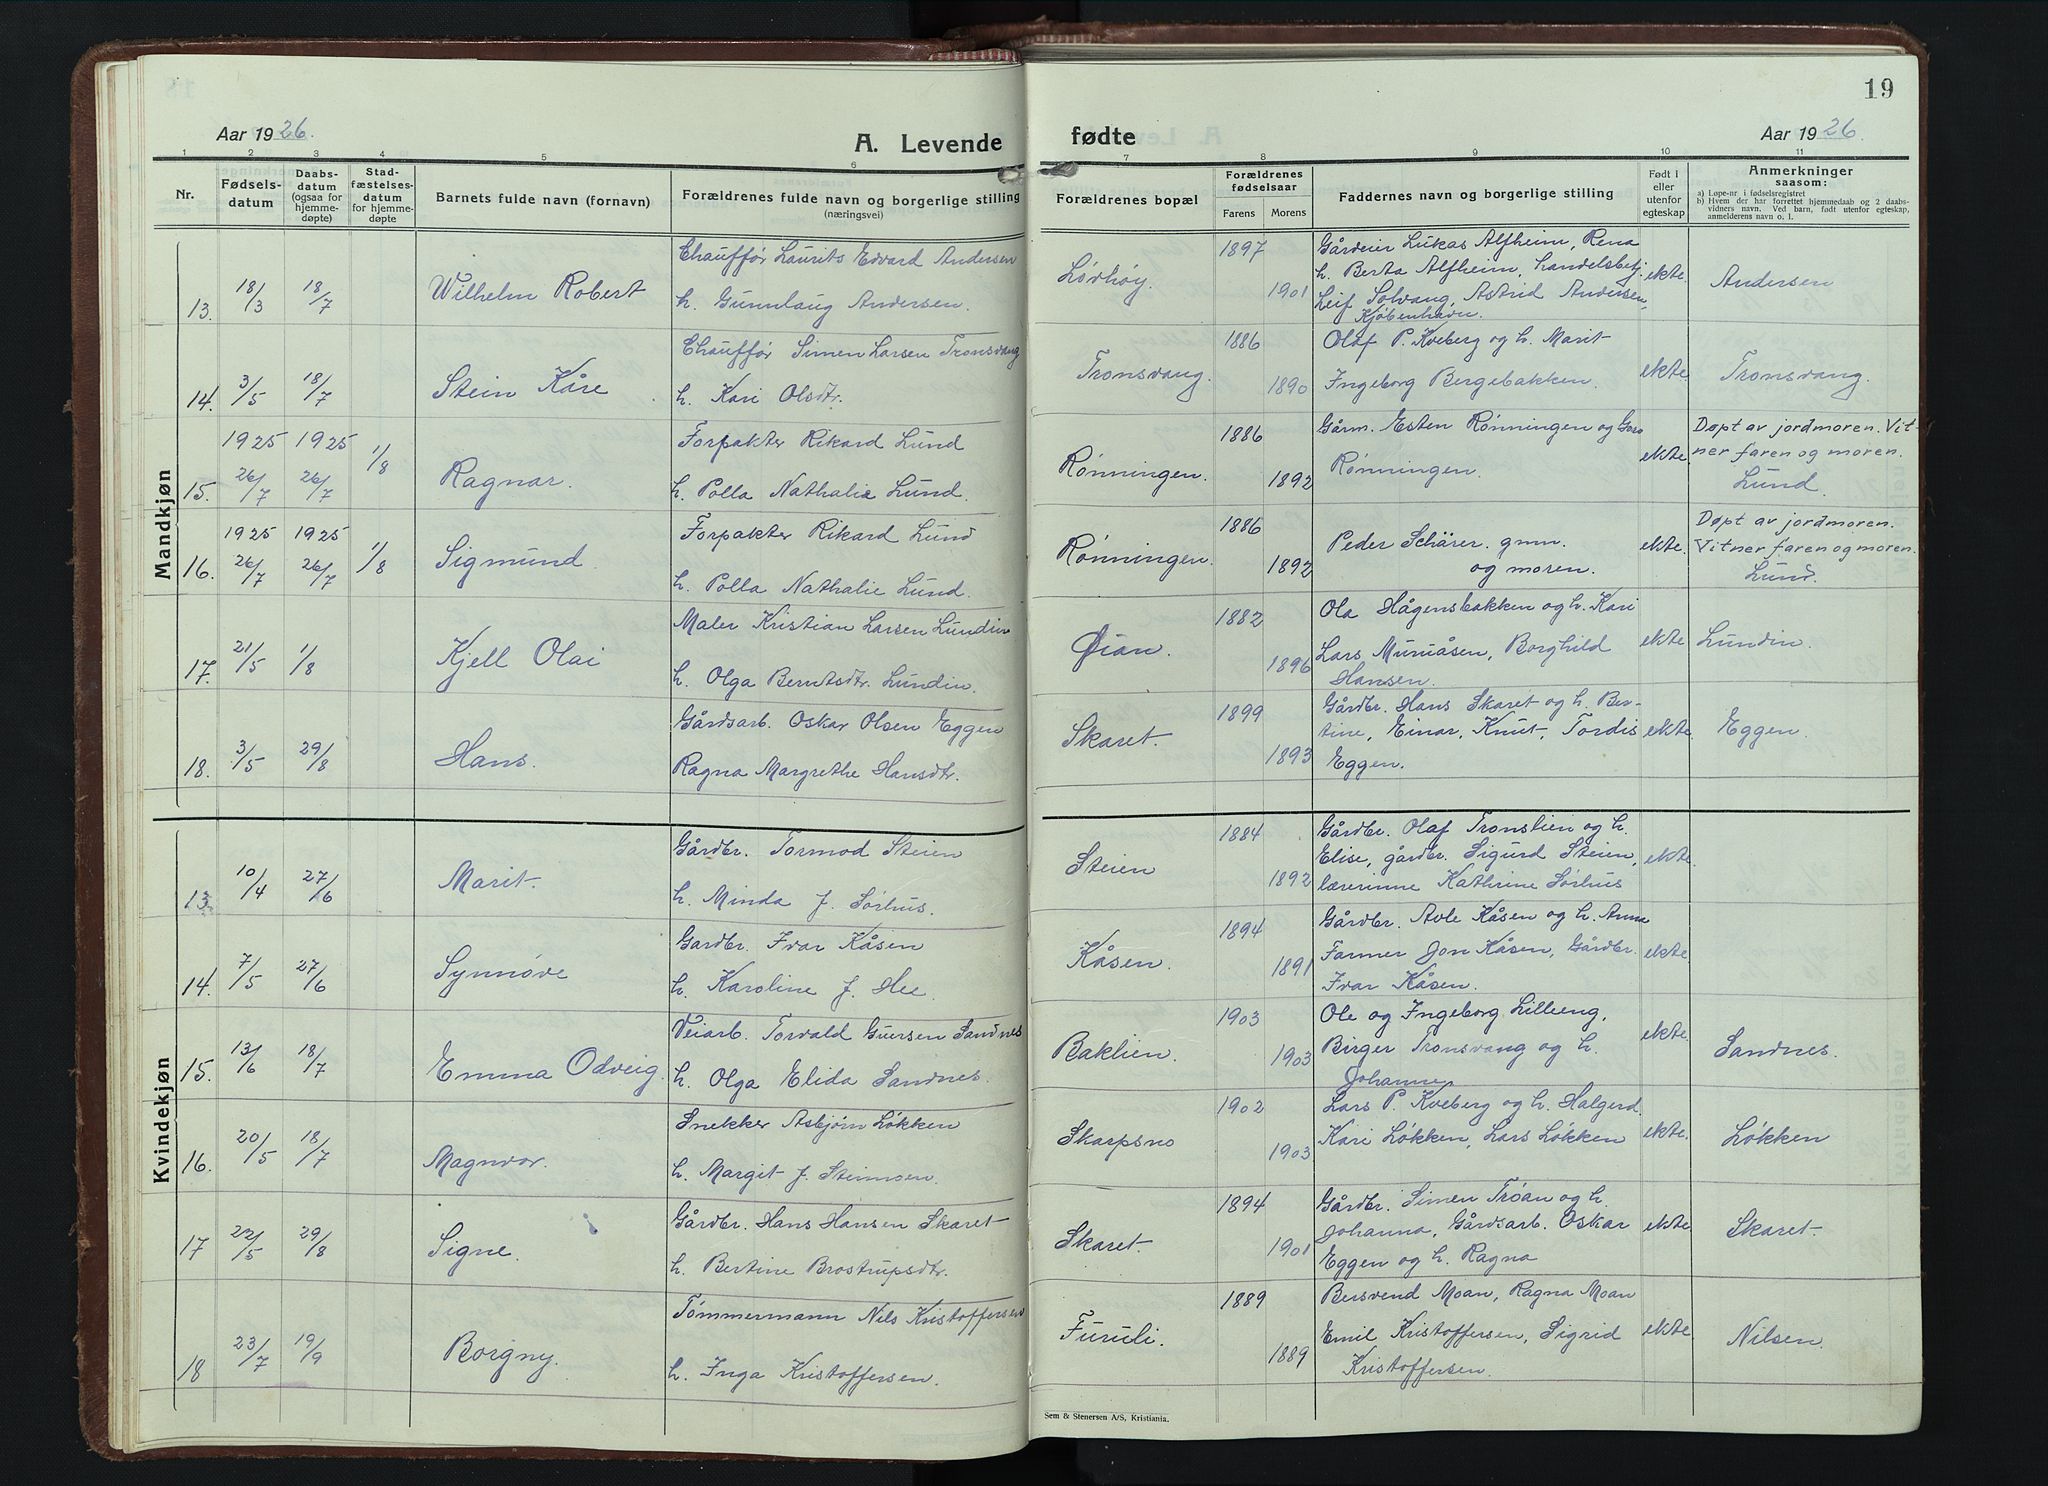 19
Aar 1926.
A. Levende
fødte
Aar 1926.
1 2 3 4 5 6 7 8 9 10 11
Nr.
Fødsels-
datum
Daabs-
datum
(ogsaa for
hjemme-
døpte)
Stad-
fæstelses-
datum
for hjemme-
døpte
Barnets fulde navn (fornavn)
Forældrenes fulde navn og borgerlige stilling
(næringsvei)
Forældrenes bopæl
Forældrenes
fødselsaar
Farens Morens
Faddernes navn og borgerlige stilling
Født i
eller
utenfor
egteskap
Anmerkninger
saasom:
a) Løpe-nr. i fødselsregistret
b) Hvem der har forrettet hjemmedaab og 2 daabs-
vidners navn. Ved barn, født utenfor egteskap,
anmelderens navn o. l.
Mandkjøn
13. 18/3 18/7 Wilhelm Robert
Chauffør Laurits Edvard Andersen
h. Gunnlaug Andersen.
Løvhøy. 1897 1901
Gårdeier Lukas Alfheim, Rena
h. Berta Alfheim, handelsbetj.
Leif Solvang, Astrid Andersen,
Kjøbenhavn.
ekte. Andersen
14. 3/5 18/7 Stein Kåre
Chauffør Simen Larsen Tronsvang
h. Kari Olsdtr.
Tronsvang. 1886 1890
Olaf P. Kveberg og h. Marit
Ingeborg Bergebakken.
ekte. Tronsvang.
15. 1925 26/7 1925 26/7 1/8 Ragnar.
Forpakter Rikard Lund
h. Polla Nathalie Lund.
Rønningen. 1886 1892
Gårm. Esten Rønningen og Goro
Rønningen.
ekte.
Døpt av jordmoren. Vit-
ner faren og moren.
Lund.
16. 1925 26/7 1925 26/7 1/8 Sigmund.
Forpakter Rikard Lund
h. Polla Nathalie Lund.
Rønningen. 1886 1892
Peder Schärer. gmn.
og moren.
ekte.
Døpt av jordmoren.
Vitner faren og moren.
Lund.
17. 21/5 1/8 Kjell Olai
Maler Kristian Larsen Lundin
h. Olga Berntsdtr. Lundin.
Øian. 1882 1896
Ola Hågensbakken og h. Kari
Lars Muruåsen, Borghild
Hansen.
ekte. Lundin.
18. 3/5 29/8 Hans.
Gårdsarb. Oskar Olsen Eggen
Ragna Margrethe Hansdtr.
Skaret. 1899 1893
Gårdbr. Hans Skaret og h. Ber-
tine, Einar, Knut, Tordis
Eggen.
ekte. Eggen.
Kvindekjøn
13. 10/4 27/6 Marit.
Gårdbr. Tormod Steien
h. Minda J. Sørhus.
Steien 1884 1892
Gårdbr. Olaf Tronslien og h.
Elise, gårdbr. Sigurd Steien,
lærerinne Kathrine Sørhus
ekte.
14. 7/5 27/6 Synnøve
Gardbr. Ivar Kåsen
h. Karoline J. Hee.
Kåsen. 1894 1891
Gårdbr. Avle Kåsen og h. Anna
Farmer Jon Kåsen, Gårdbr.
Ivar Kåsen.
ekte.
15. 13/6 18/7 Emma Odveig.
Veiarb. Torvald Guersen Sandnes
h. Olga Elida Sandnes.
Baklien. 1903 1903
Ole og Ingeborg Lilleeng,
Birger Tronsvang og h.
Johanne
ekte. Sandnes.
16. 20/5 18/7 Magnvor.
Snekker Asbjørn Løkken
h. Margit J. Steimoen.
Skarpsno 1902 1903
Lars P. Kveberg og h. Halgerd
Kari Løkken, Lars Løkken
ekte. Løkken
17 22/5 29/8 Signe.
Gårdbr. Hans Hansen Skaret
h. Bertine Brostrupsdtr.
Skaret. 1894 1901
Gårdbr. Simen Tróan og h.
Johanna, Gårdsarb. Oskar
Eggen og h. Ragna
ekte Skaret.
18 23/7 19/9 Borgny.
Tømmermann Nils Kristoffersen
h. Inga Kristoffersen.
Furuli. 1889 1889
Bersvend Moan, Ragna Moan
Emil Kristoffersen, Sigrid
Kristoffersen.
ekte. Nilsen.
Sem & Stenersen A/S, Kristiania.